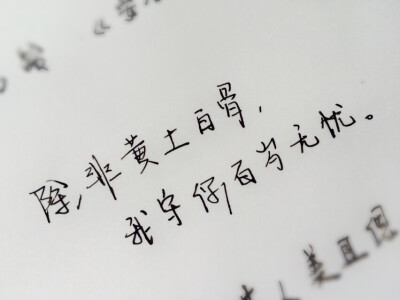 除非黄土白骨，
我守你百岁无忧。
美且